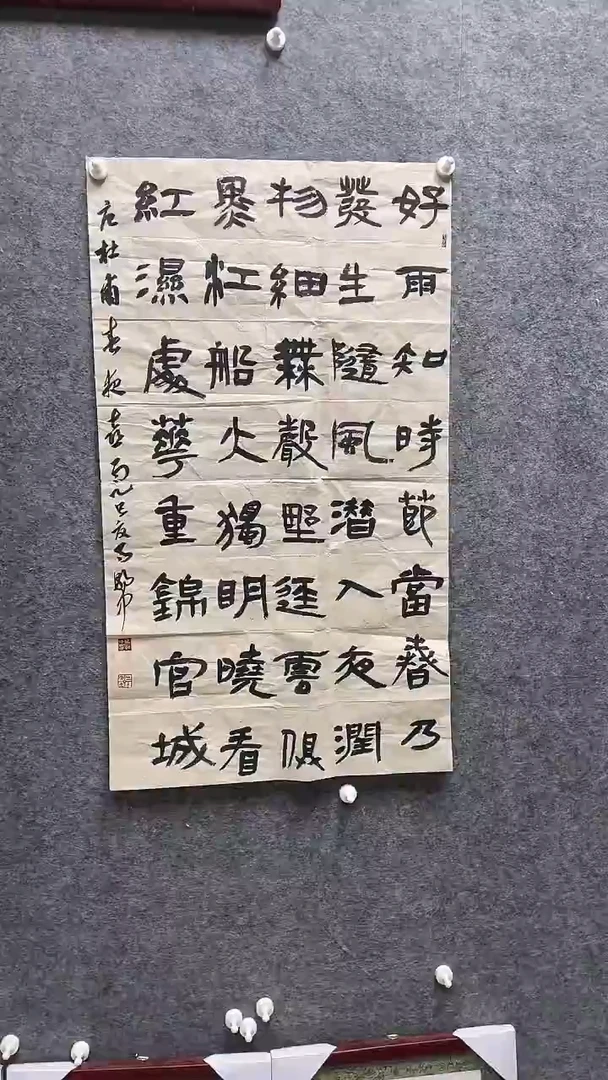 好雨知時節當春乃
發生隨風潛入夜潤
物細無聲野徑雲俱
黑江船火獨明曉看
紅濕處華重錦官城
杜甫春夜喜雨乙巳夏